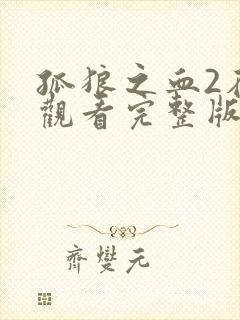 孤狼之血2
觀看完整版
齊燮元